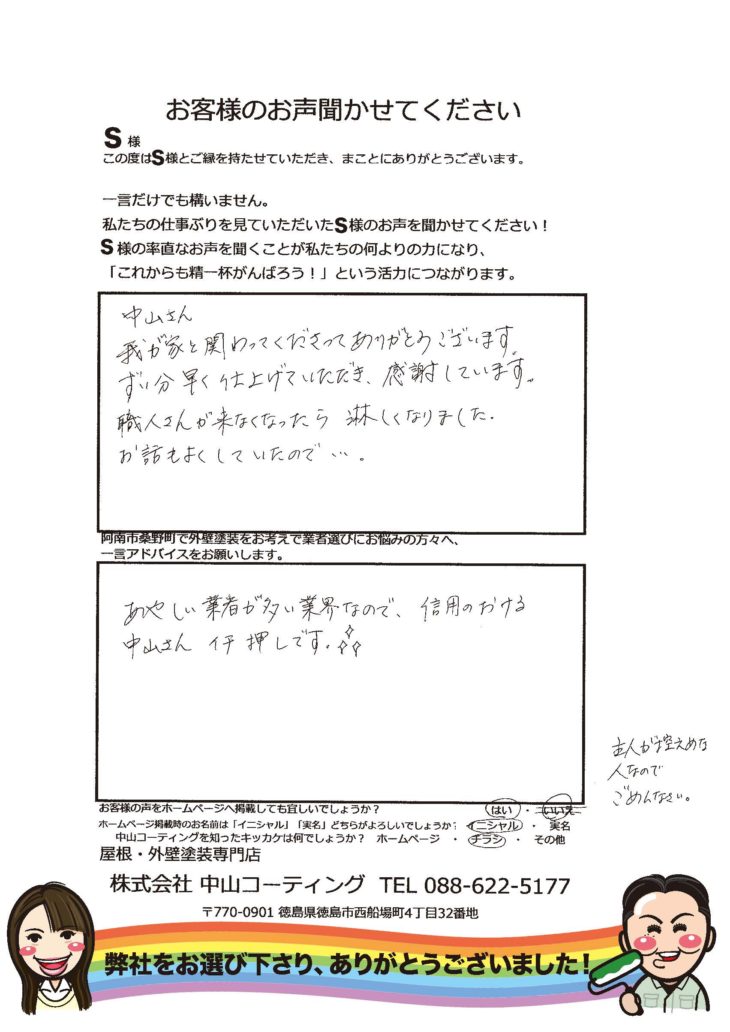 お客様のお声聞かせてください
S 様
この度はS様とご縁を持たせていただき、まことにありがとうございます。
一言だけでも構いません。
私たちの仕事ぶりを見ていただいたS様のお声を聞かせてください！
S様の率直なお声を聞くことが私たちの何よりの力になり、
「これからも精一杯がんばろう！」という活力につながります。
中山さん
我が家と関わってくださってありがとうございます。
ずい分早く仕上げていただき、感謝しています。
職人さんが来なくなったら 淋しくなりました.
お話もよくしていたので…。
阿南市桑野町で外壁塗装をお考えで業者選びにお悩みの方々へ、
一言アドバイスをお願いします。
あやしい業者が多い業界なので、信用のおける
中山さん イチ押しです。
主人が控えめな
人なので
ごめんなさい。
お客様の声をホームページへ掲載しても宜しいでしょうか？ はい ・ いいえ
ホームページ掲載時のお名前は「イニシャル」「実名」どちらがよろしいでしょうか？ イニシャル ・ 実名
中山コーティングを知ったキッカケは何でしょうか？ ホームページ ・ チラシ ・ その他
屋根・外壁塗装専門店
株式会社 中山コーティング TEL 088-622-5177
〒770-0901 徳島県徳島市西船場町4丁目32番地
弊社をお選び下さり、ありがとうございました！